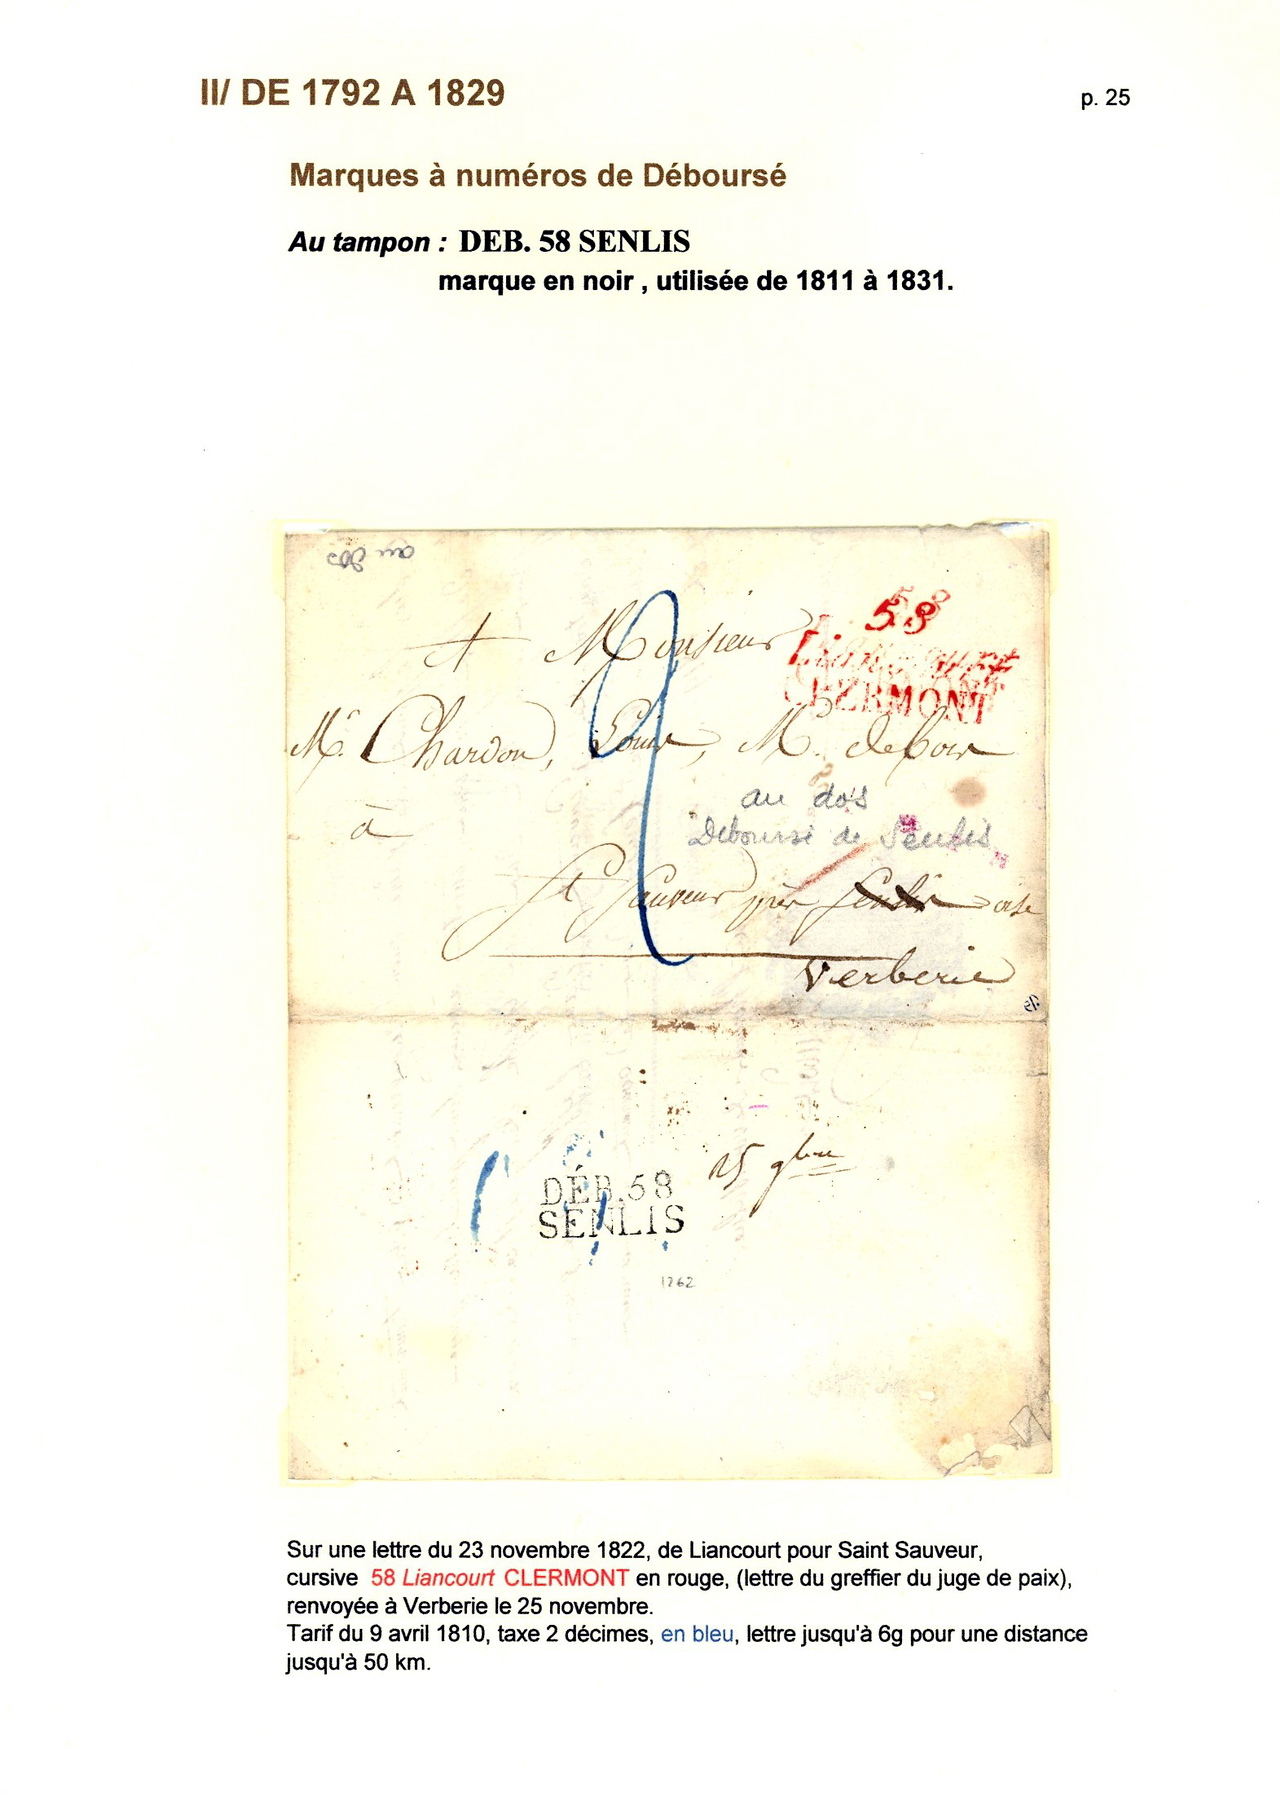 II/ DE 1792 A 1829
p. 25
Marques à numéros de Déboursé
Au tampon : DEB. 58 SENLIS
marque en noir , utilisée de 1811 à 1831.
au dos
58
A Monsieur
Liancourt
CLERMONT
Mr. Chardon, M. de bois
au dos
Deboursé de Senlis
à
St Sauveur près Senlis oise
Verberie
2
25 9bre
DÉB. 58
SENLIS
1262
Sur une lettre du 23 novembre 1822, de Liancourt pour Saint Sauveur,
cursive 58 Liancourt CLERMONT en rouge, (lettre du greffier du juge de paix),
renvoyée à Verberie le 25 novembre.
Tarif du 9 avril 1810, taxe 2 décimes, en bleu, lettre jusqu'à 6g pour une distance
jusqu'à 50 km.